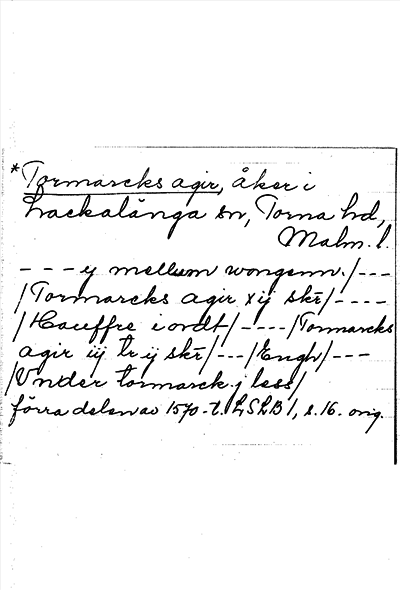 *Tormarcks agir, åker i
Lackalänga sn, Torna hd,
Malm. l.
- - - ij mellum wongenn./- - -
/Tormarcks agir xij skr/- - - -
/Haffre i ordt/- - - -/Tormarcks
agir iij tr ij skr/- - -/Engh/- - -
/Vnder tormarck j less/
förra delen av 1570-t. LSLB 1, s. 16. orig.